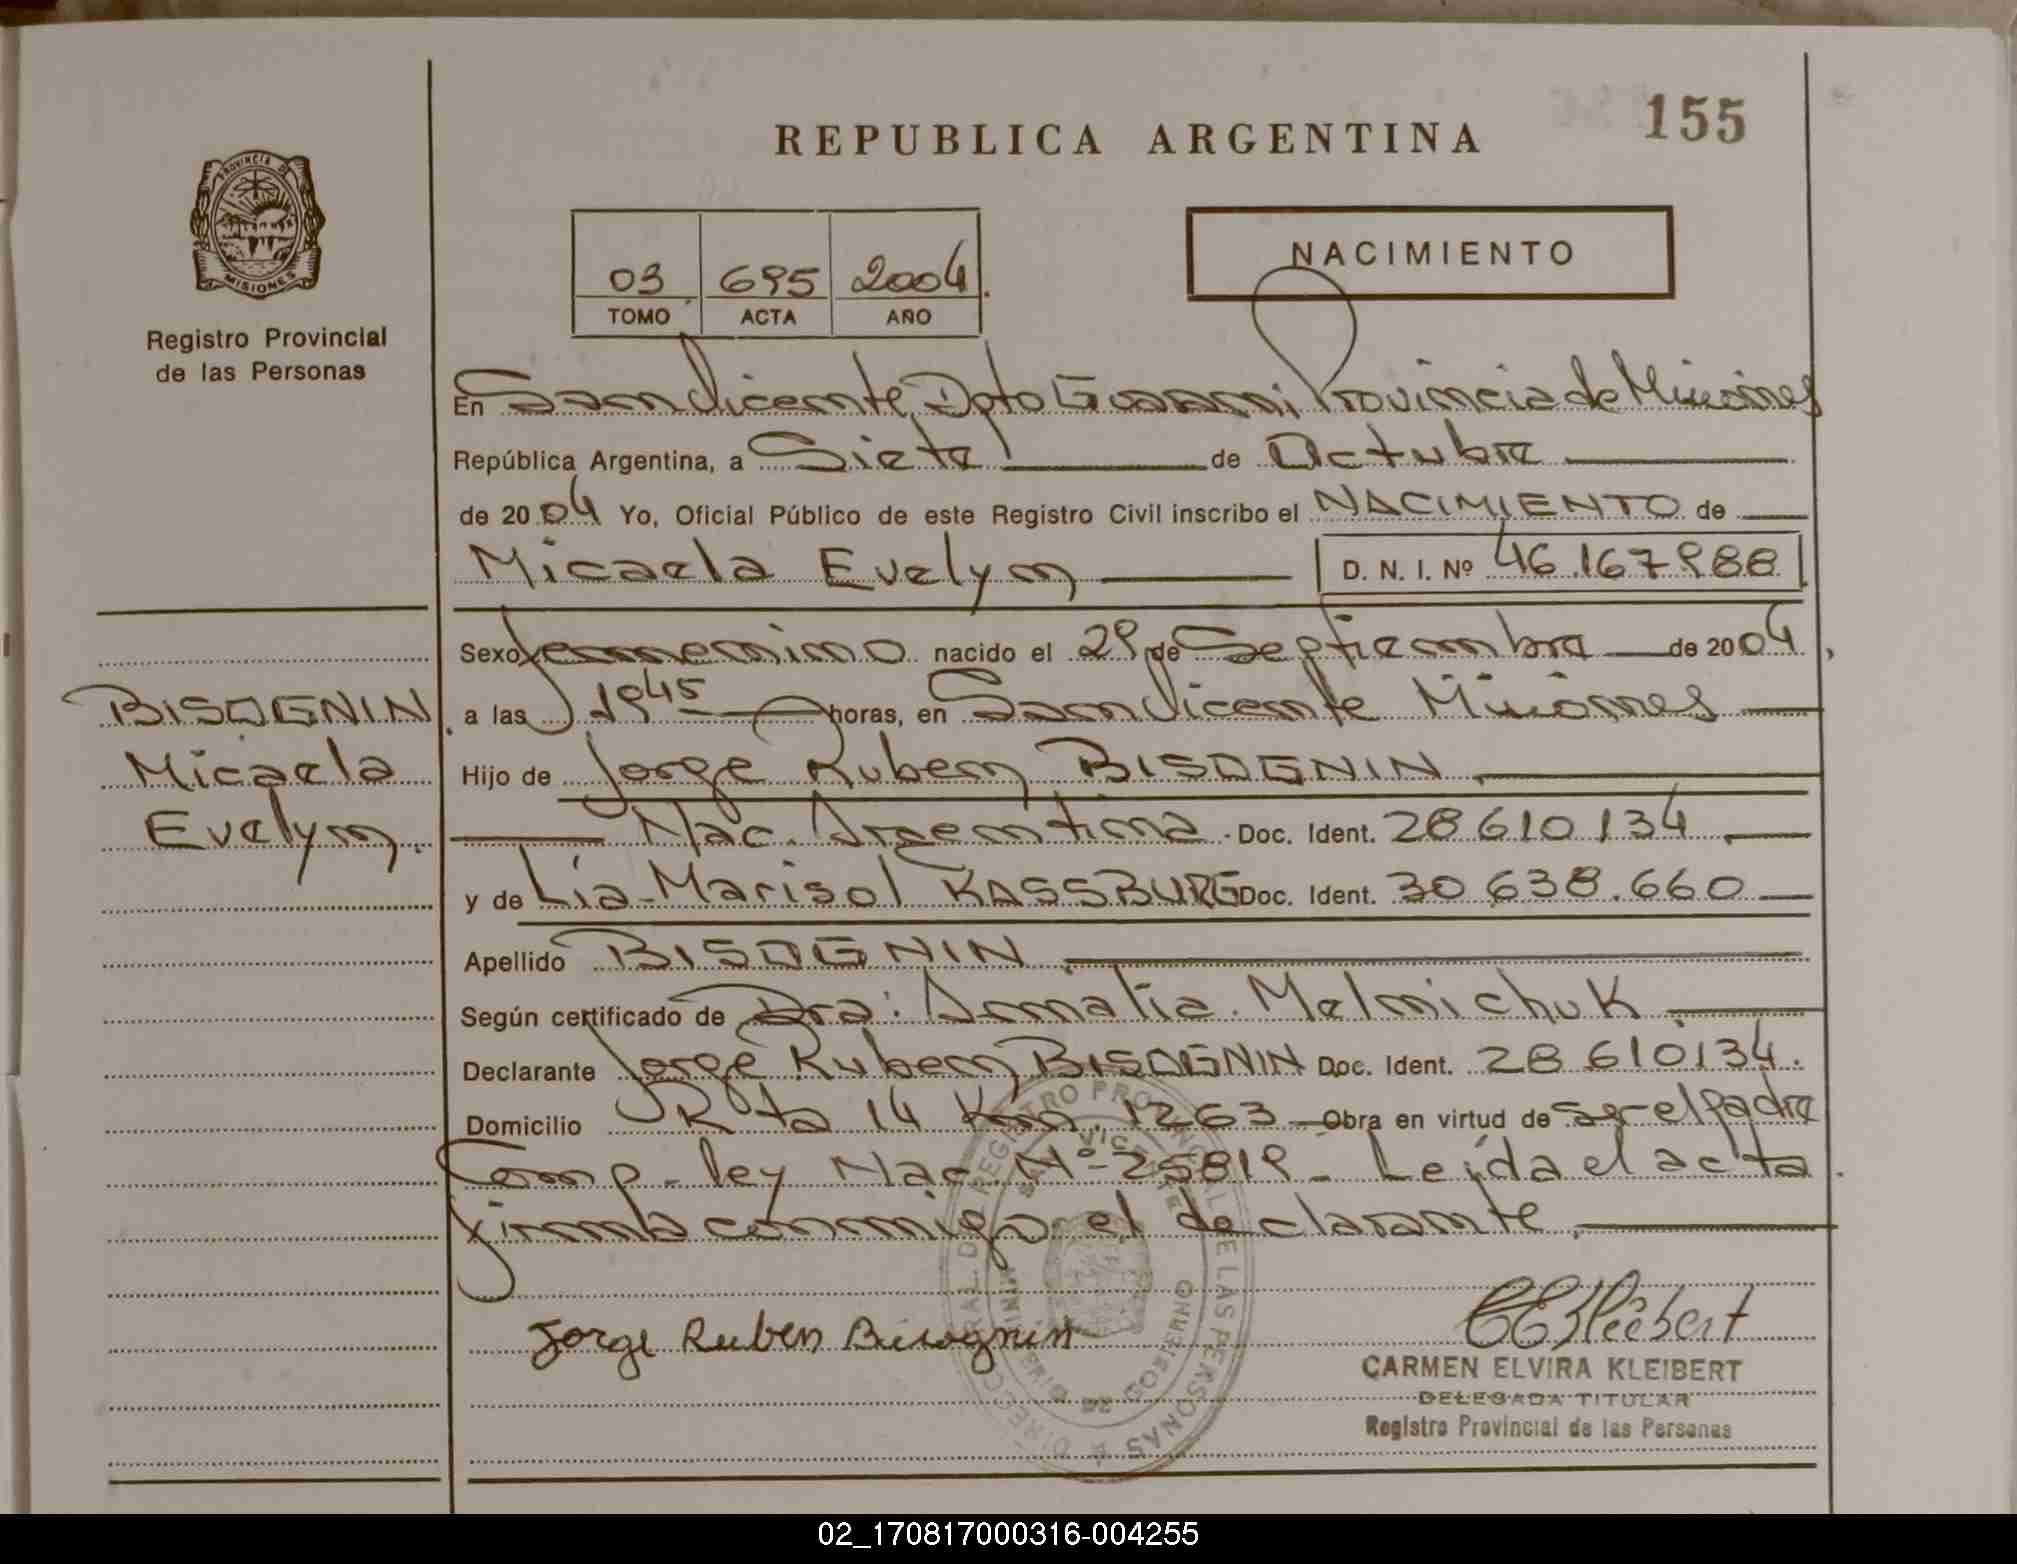 REPUBLICA ARGENTINA
155
PROVINCIA DE
MISIONES
Registro Provincial
de las Personas
03 695 2004
TOMO ACTA AÑO
NACIMIENTO
En San Vicente, Dpto Guarani Provincia de Misiones
República Argentina, a Siete de Octubre
de 2004 Yo, Oficial Público de este Registro Civil inscribo el NACIMIENTO de
Micaela Evelyn D. N. I. Nº 46.167.988
Sexo femenino nacido el 29 de Septiembre de 2004,
a las 19 45 horas, en San Vicente Misiones
BISOGNIN
Micaela
Evelyn.
Hijo de Jorge Ruben BISOGNIN
Nac. Argentina. Doc. Ident. 28 610 134
y de Lia Marisol KASSBURG Doc. Ident. 30.638.660
Apellido BISOGNIN
Según certificado de Dra: Amalia Melnichuk
Declarante Jorge Ruben BISOGNIN Doc. Ident. 28 610134.
Domicilio Rta 14 Km. 1263 Obra en virtud de ser el padre
Comp. ley Nac. Nº 25819 - Leida el acta
firma conmigo el declarante.
Jorge Ruben Bisognin
CEKleibert
CARMEN ELVIRA KLEIBERT
DELEGADA TITULAR
Registro Provincial de las Personas
02_170817000316-004255